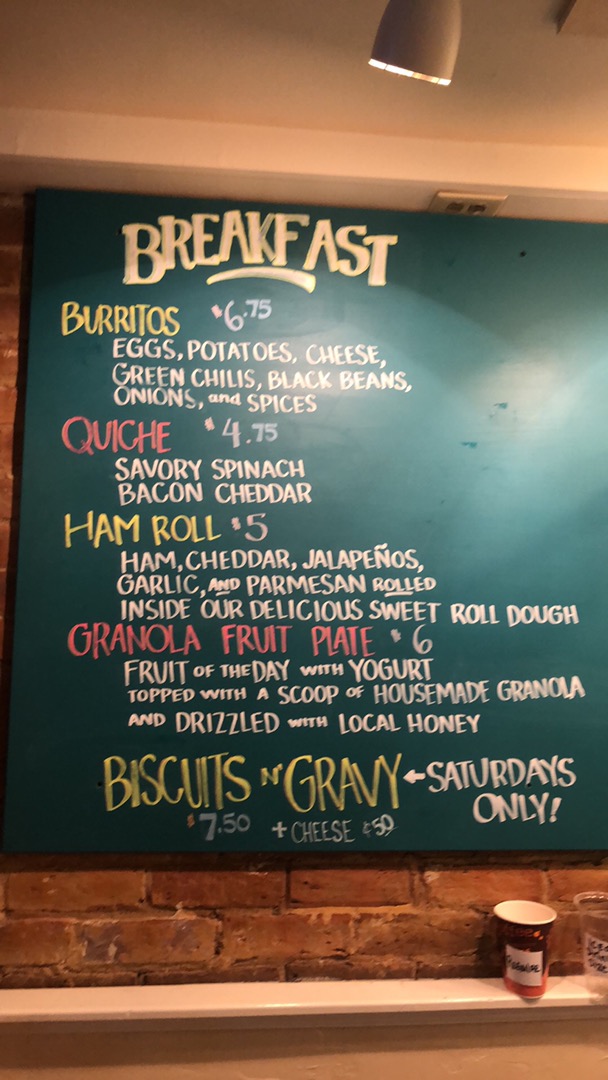 BREAKFAST
BURRITOS $6.75
EGGS, POTATOES, CHEESE,
GREEN CHILIS, BLACK BEANS,
ONIONS, and SPICES
QUICHE $4.75
SAVORY SPINACH
BACON CHEDDAR
HAM ROLL $5
HAM, CHEDDAR, JALAPEÑOS,
GARLIC, AND PARMESAN ROLLED
INSIDE OUR DELICIOUS SWEET ROLL DOUGH
GRANOLA FRUIT PLATE $6
FRUIT OF THE DAY WITH YOGURT
TOPPED WITH A SCOOP OF HOUSEMADE GRANOLA
AND DRIZZLED WITH LOCAL HONEY
BISCUITS N' GRAVY ← SATURDAYS
ONLY!
$7.50 + CHEESE ¢50